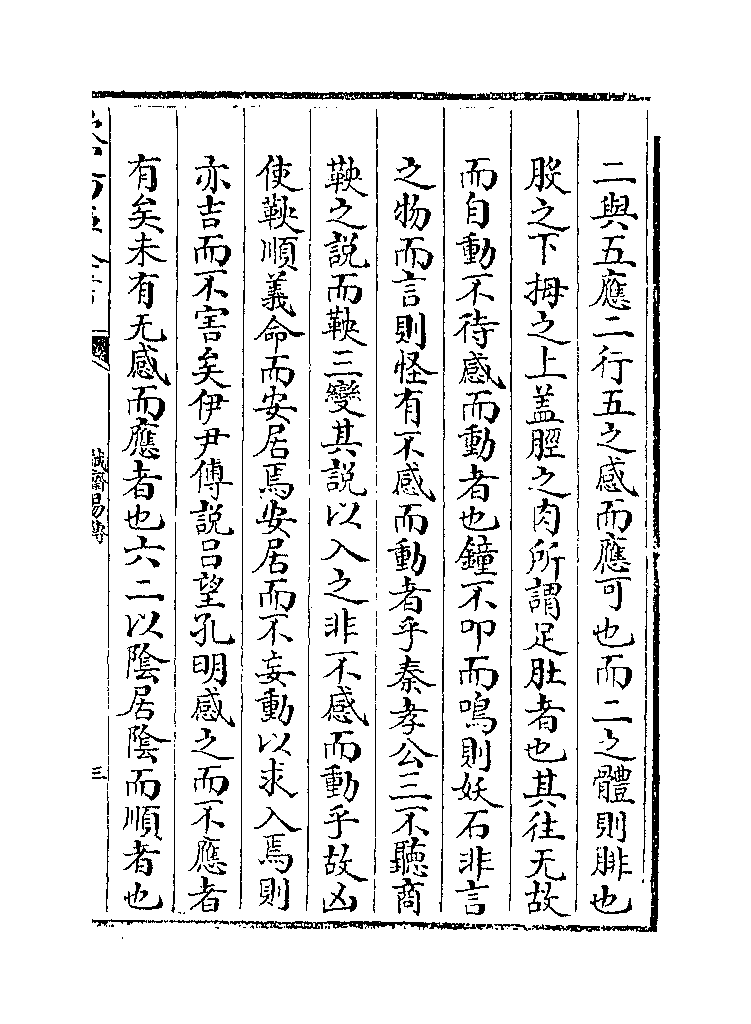 二與五應二行五之感而應可也而二之體則腓也
股之下拇之上蓋脛之肉所謂足肚者也其往无故
而自動不待感而動者也鐘不叩而鳴則妖石非言
之物而言則怪有不感而動者乎秦孝公三不聽商
鞅之說而鞅三變其說以入之非不感而動乎故凶
使鞅順義命而安居焉安居而不妄動以求入焉則
亦吉而不害矣伊尹傅說吕望孔明感之而不應者
有矣未有无感而應者也六二以陰居陰而順者也
誠齋易傳
三